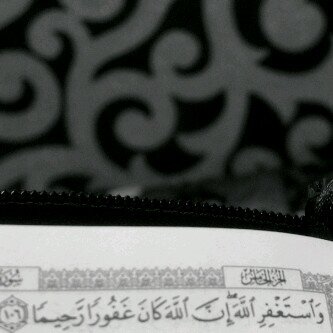 الجزء الخامس سورة
وَٱسْتَغْفِرِ ٱللَّهَۖ إِنَّ ٱللَّهَ كَانَ غَفُورًا رَّحِيمًا ١٠٦